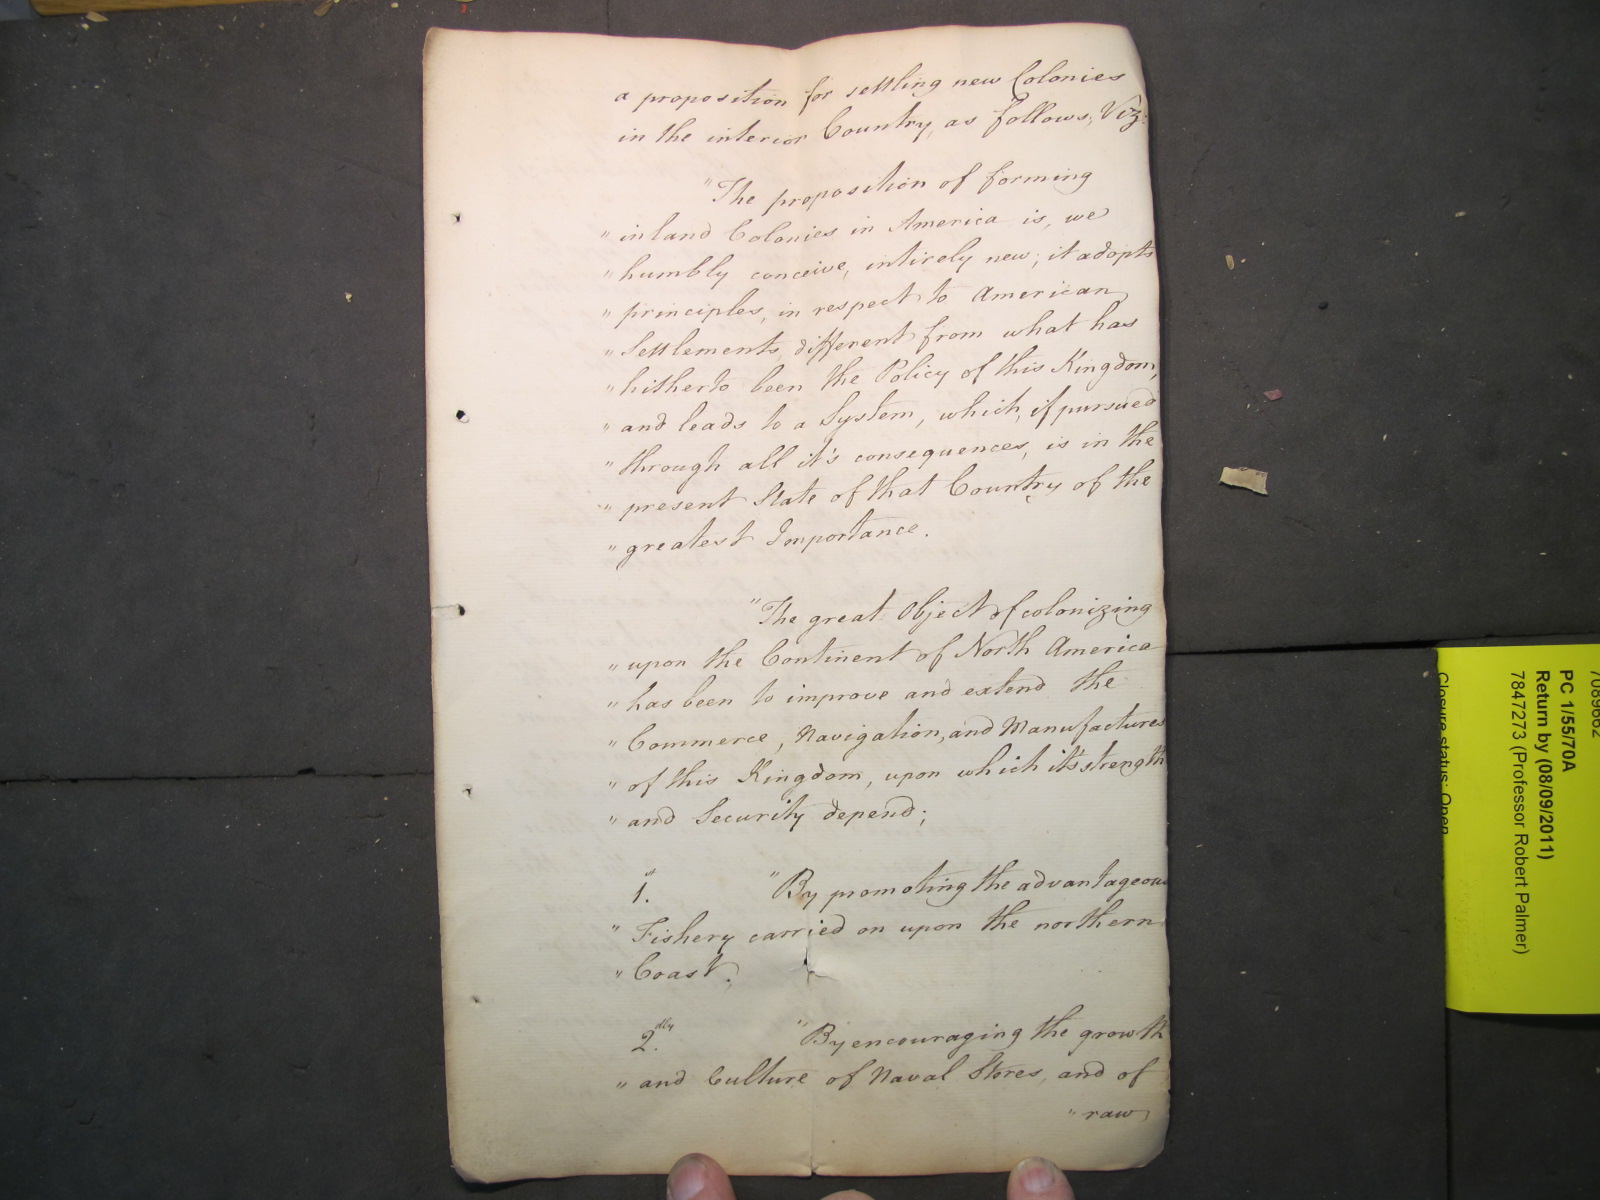 a proposition for settling new Colonies
in the interior Country, as follows, Viz:
"The proposition of forming
" inland Colonies in America is, we
" humbly conceive, intirely new; it adopts
" principles, in respect to American
" Settlements, different from what has
" hitherto been the Policy of this Kingdom,
" and leads to a System, which, if pursued
" through all it's consequences, is in the
" present State of that Country of the
" greatest Importance.
"The great Object of colonizing
" upon the Continent of North America
" has been to improve and extend the
" Commerce, Navigation, and Manufactures
" of this Kingdom, upon which it's strength
" and Security depend;
1.st "By promoting the advantageous
" Fishery carried on upon the northern
" Coast.
2.dly "By encouraging the growth
" and Culture of Naval Stores, and of
" raw
7089662
PC 1/55/70A
Return by (08/09/2011)
7847273 (Professor Robert Palmer)
Closure status: Open